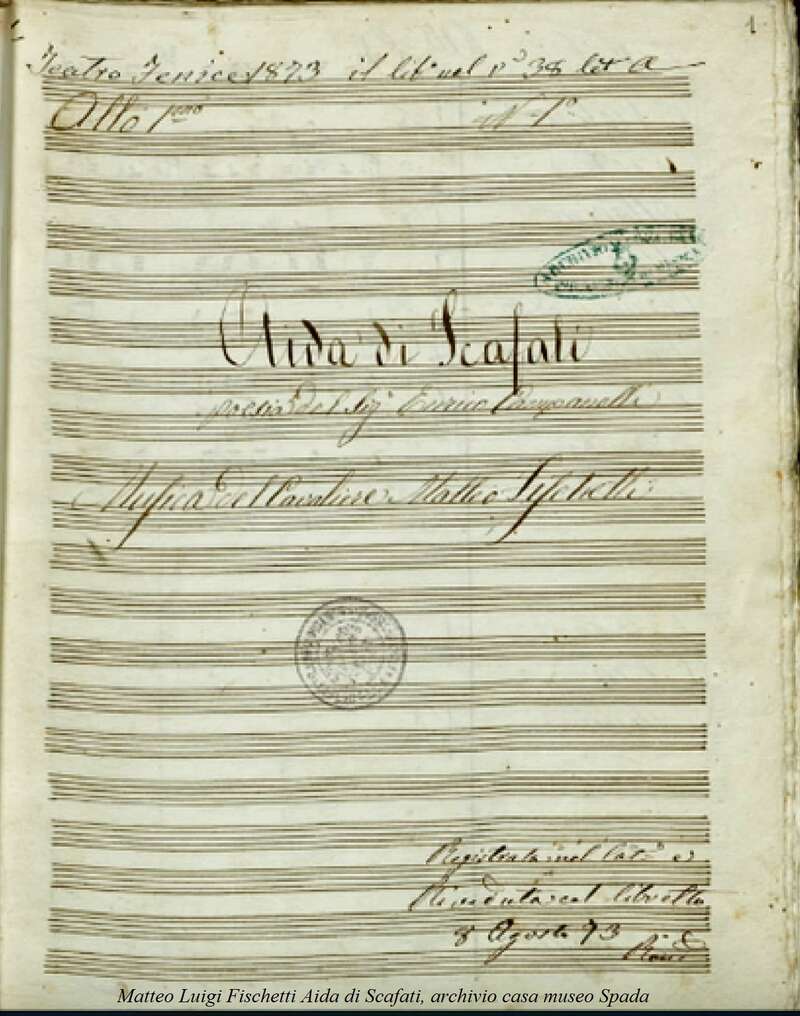 1
Teatro Fenice 1873 il libº nel pº 38 let A
Atto 1mo Nº 1º
Aida di Scafati
poesia del Sigr Enrico Campanelli
Musica del Cavaliere Matteo Fischetti
ARCHIVIO
Registrata nel catº e
Riveduta col libretto
8 Agosto 73
Matteo Luigi Fischetti Aida di Scafati, archivio casa museo Spada